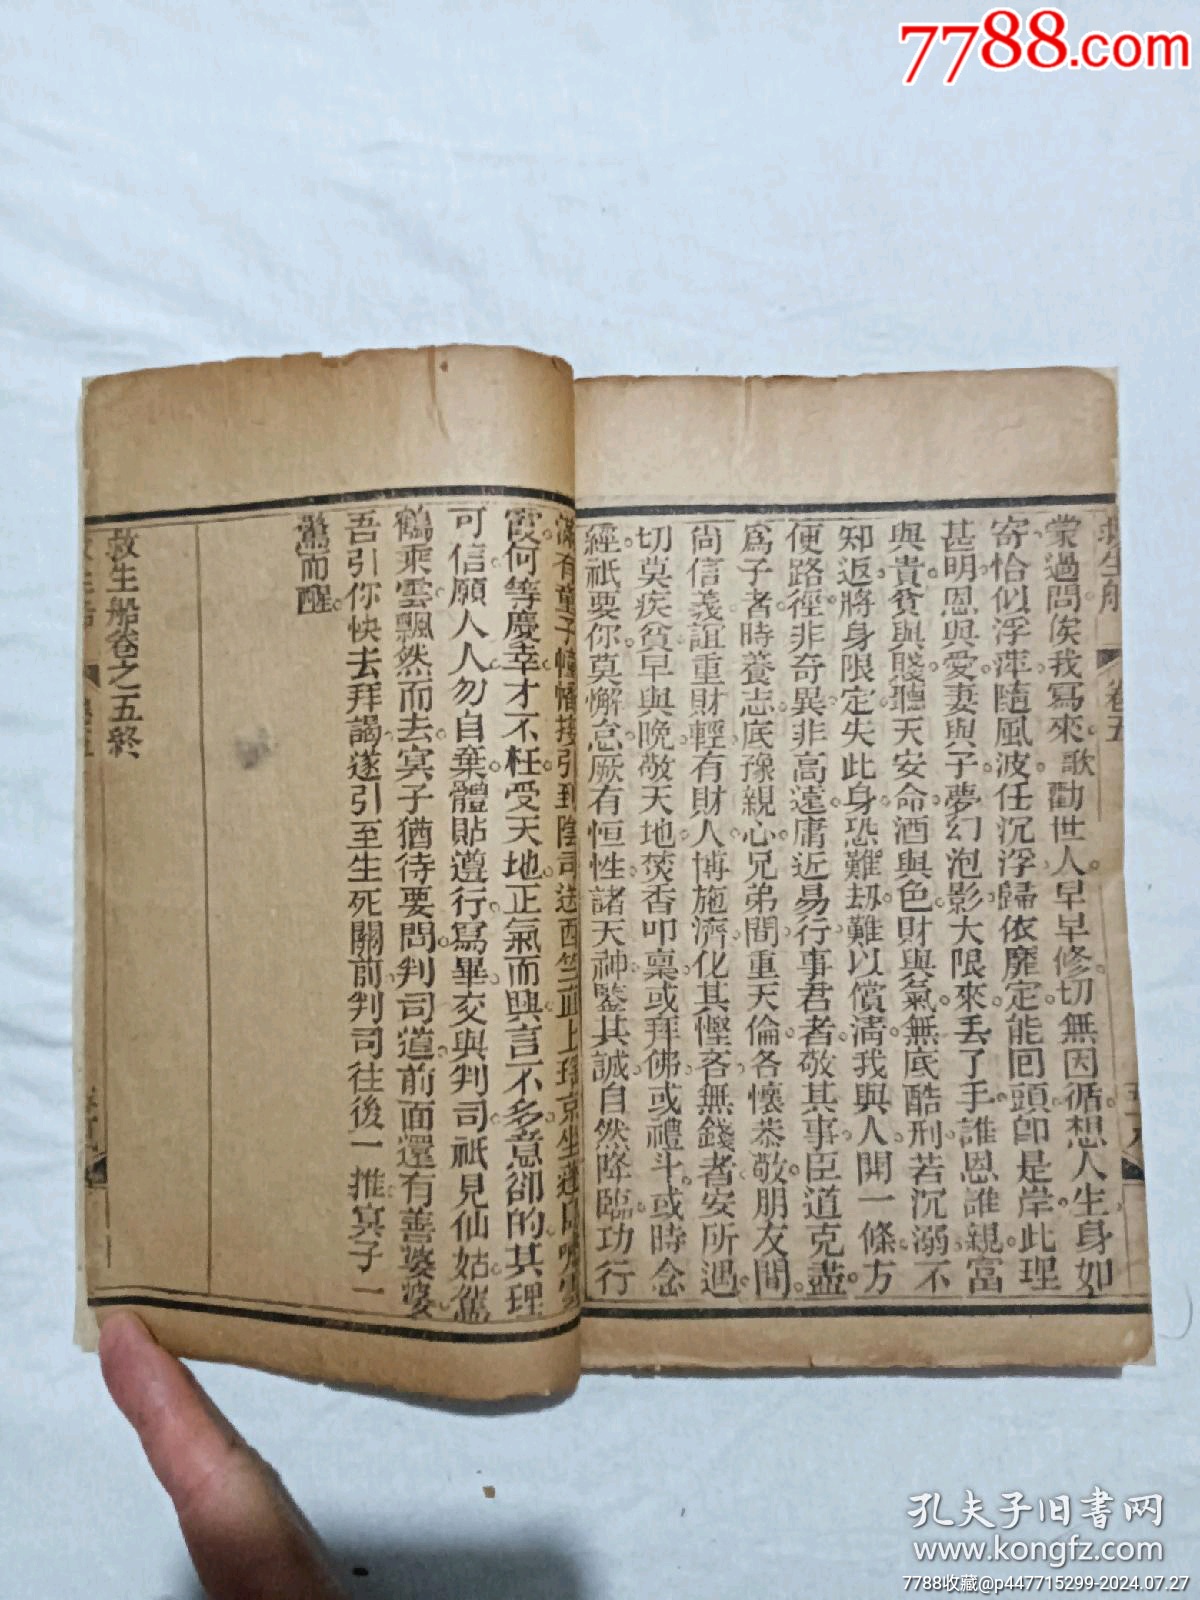 7788.com
救生船 卷五
蒙過問俟我寫來歌勸世人早早修切無因循想人生身如
寄恰似浮萍隨風波任沉浮歸依靡定能回頭卽是岸此理
甚明恩與愛妻與子夢幻泡影大限來丢了手誰恩誰親富
與貴貧與賤聽天安命酒與色財與氣無底酷刑若沉溺不
知返將身限定失此身恐難刼難以償淸我與人開一條方
便路徑非奇異非高遠庸近易行事君者敬其事臣道克盡
爲子者時養志底豫親心兄弟間重天倫各懷恭敬朋友間
尚信義誼重財輕有財人博施濟化其慳吝無錢者安所遇
切莫疾貧早與晚敬天地焚香叩稟或拜佛或禮斗或時念
經祇要你莫懈怠厥有恒性諸天神鑒其誠自然降臨功行
滿有童子幢幡接引到陰司送西竺正上瑤京坐蓮
霞何等慶幸才不枉受天地正氣而興言不多意卻的其理
可信願人人勿自棄體貼遵行寫畢交與判司祇見仙姑駕
鶴乘雲飄然而去冥子猶待要問判司道前面還有善婆婆
吾引你快去拜謁遂引至生死關前判司往後一推冥子一
驚而醒
救生船卷之五終
孔夫子旧書网
www.kongfz.com
7788收藏@p447715299-2024.07.27